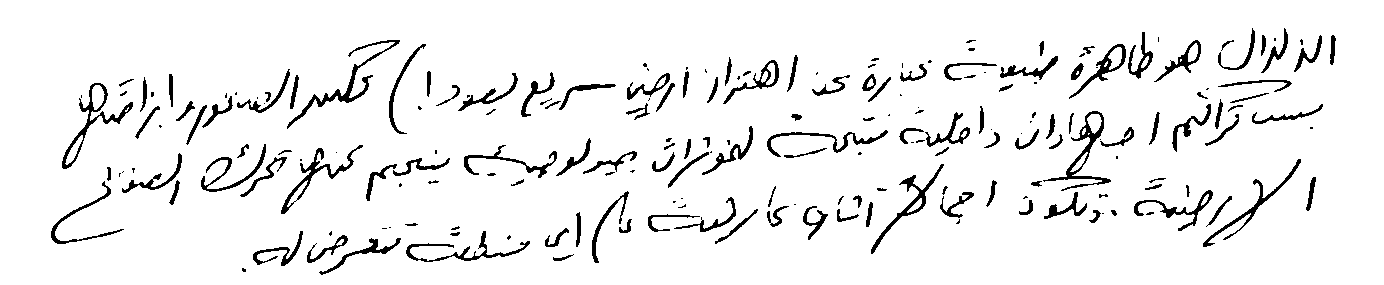 الزلزال هو ظاهرة طبيعية عبارة عن اهتزاز أرضي سريع يعود إلى تكسر الصخور وإزاحتها
بسبب تراكم اجهادات داخلية نتيجة لمؤثرات جيولوجية ينجم عنها تحرك الصفائح
الأرضية. وتكون احيانا آثاره كارثية على اي منطقة تتعرض له.